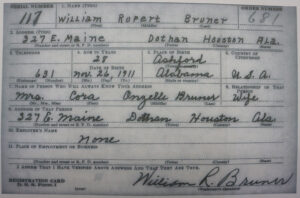 SERIAL NUMBER 1. NAME (Print) ORDER NUMBER
117 William Rupert Bruner 681
2. ADDRESS (Print)
327 E. Maine Dothan Houston Ala.
3. TELEPHONE 4. AGE IN YEARS 5. PLACE OF BIRTH 6. COUNTRY OF CITIZENSHIP
28 Ashford
DATE OF BIRTH
631 Nov. 26, 1911 Alabama U.S.A.
7. NAME OF PERSON WHO WILL ALWAYS KNOW YOUR ADDRESS 8. RELATIONSHIP OF THAT PERSON
Mrs. Cora Bruner Wife
9. ADDRESS OF THAT PERSON
327 E. Maine Dothan Houston Ala.
10. EMPLOYER'S NAME
None
11. PLACE OF EMPLOYMENT OR BUSINESS
I AFFIRM THAT I HAVE VERIFIED ABOVE ANSWERS AND THAT THEY ARE TRUE.
REGISTRATION CARD
D. S. S. Form 1
William R. Bruner